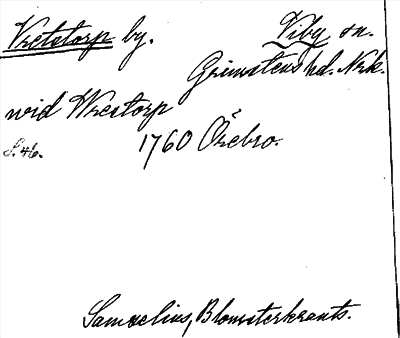 Vretstorp by. Viby sn.
Grimstens hd. Nrk.
wid Wrestorp
S. 46. 1760 Örebro.
Samzelius, Blomsterkrants.